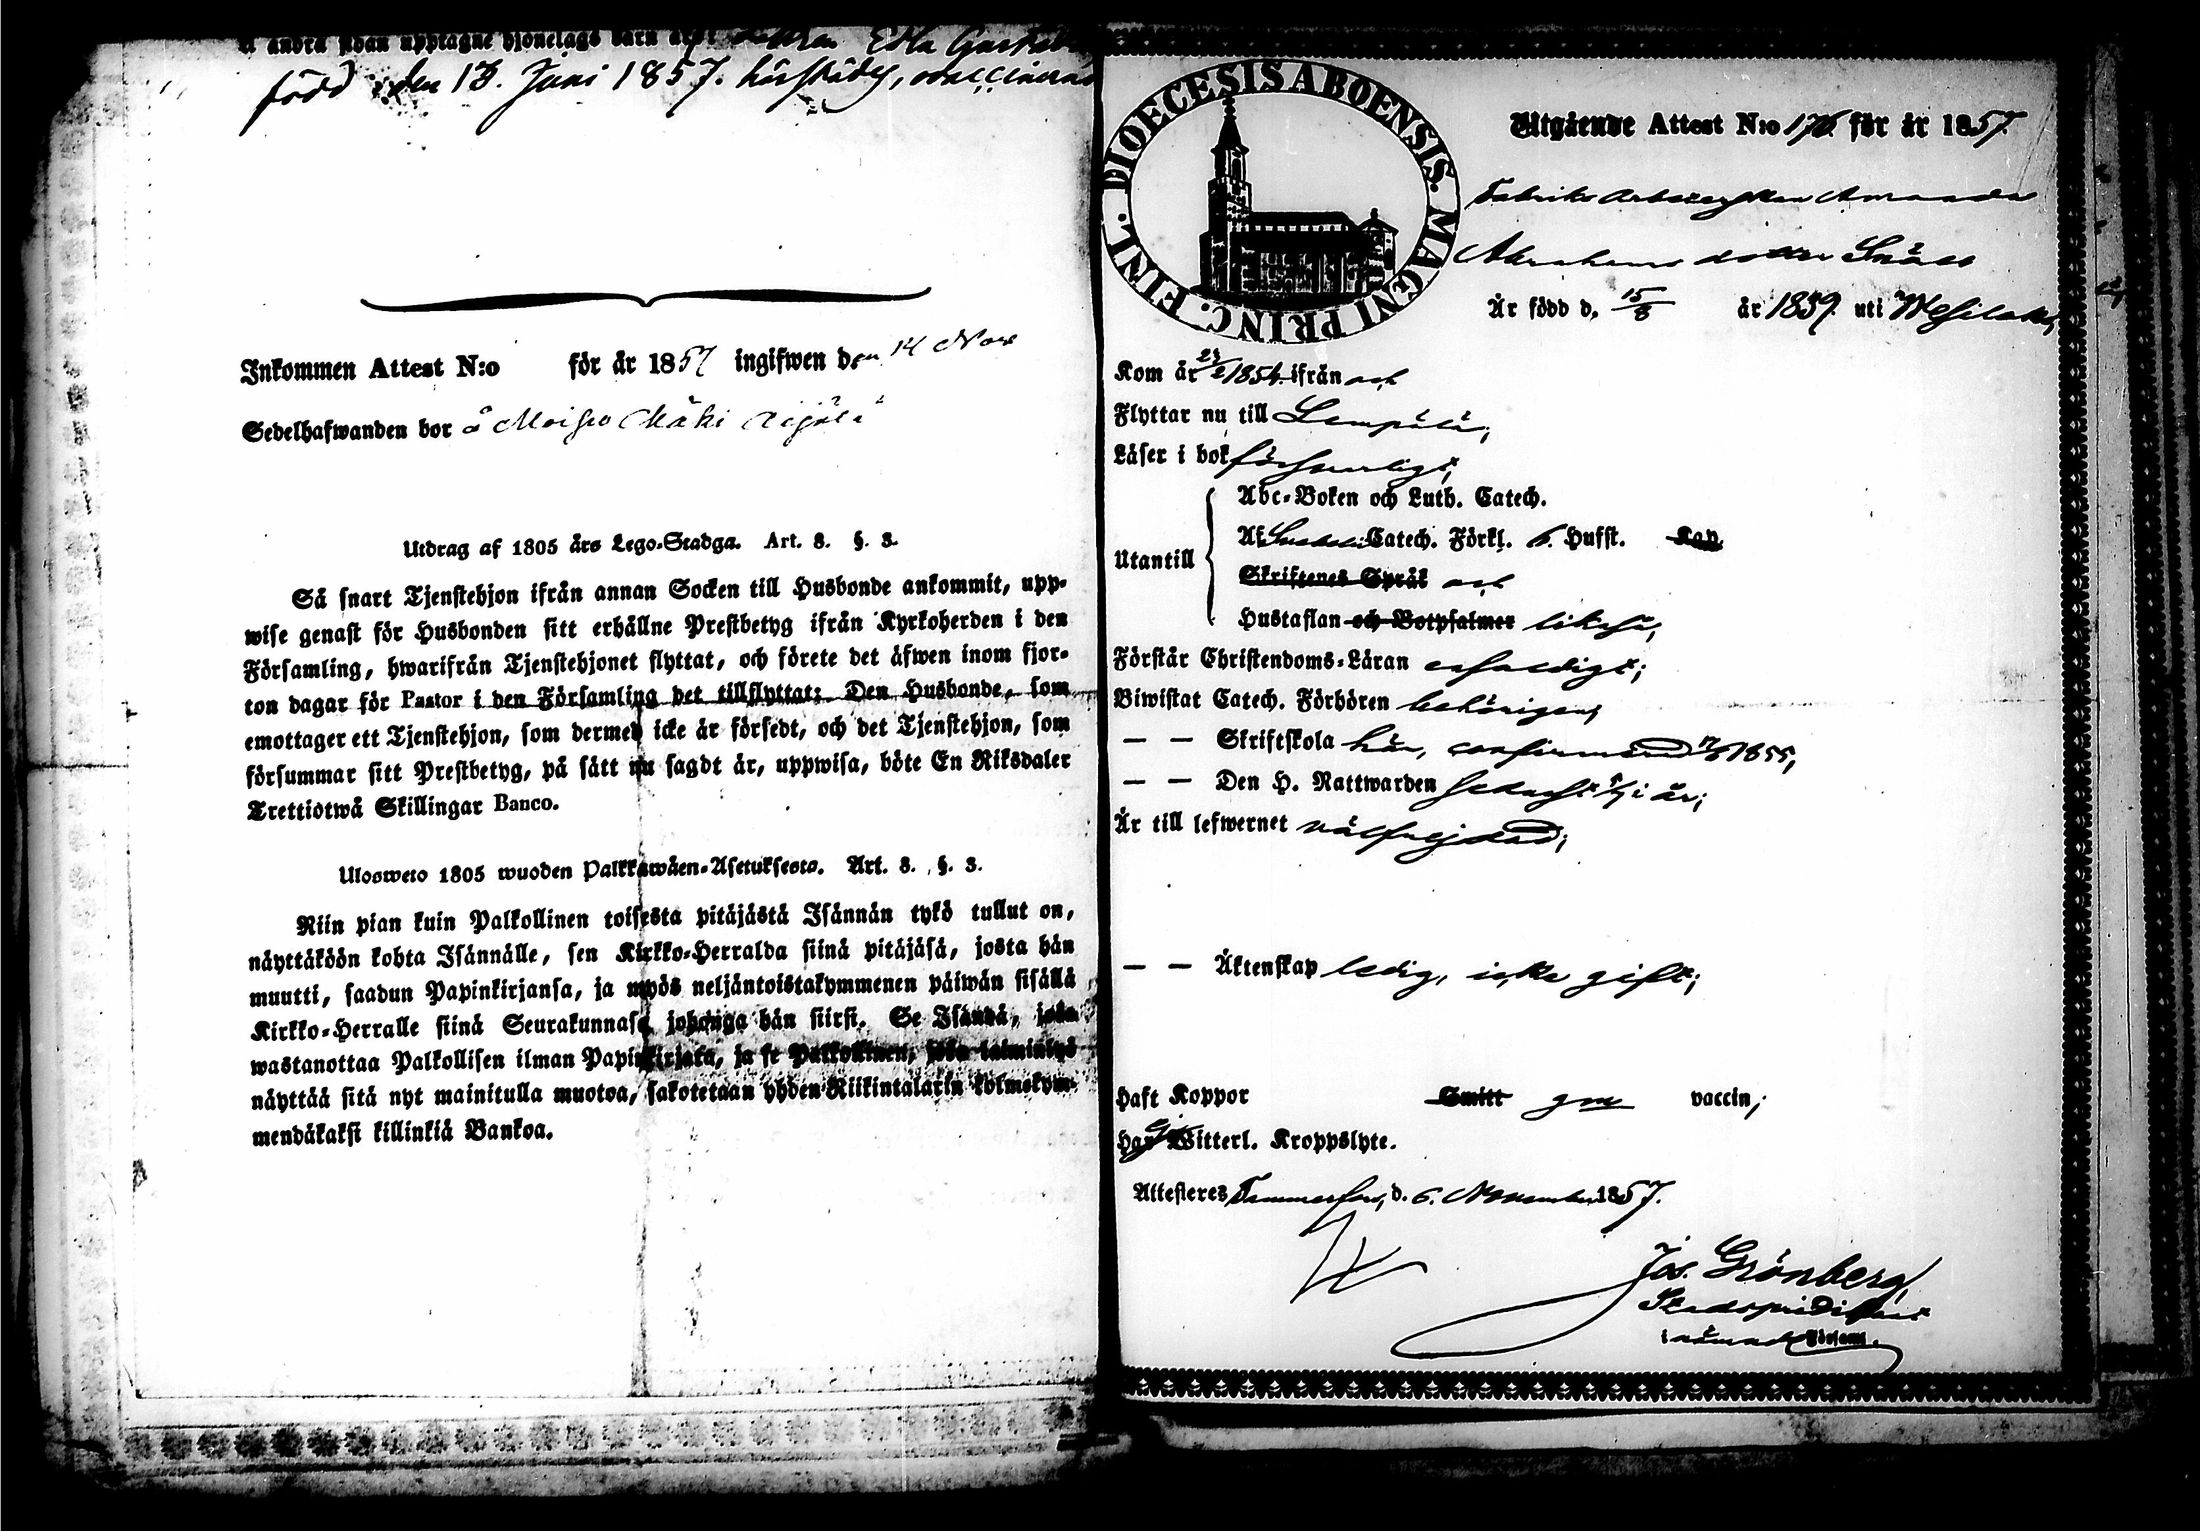 å andra sidan upptagne hjonelags barn äro
född den 13. Juni 1857. härstädes, vaccinerad
Inkommen Attest N:o för år 1857 ingifwen den 14 Nov
Sedelhafwanden bor å Moisio Mäki
Utdrag af 1805 års Lego-Stadga. Art. 8. §. 3.
Så snart Tjenstehjon ifrån annan Socken till Husbonde ankommit, upp-
wise genast för Husbonden sitt erhållne Prestbetyg ifrån Kyrkoherden i den
Församling, hwarifrån Tjenstehjonet flyttat, och förete det äfwen inom fjor-
ton dagar för Pastor i den Församling det tillflyttat; Den Husbonde, som
emottager ett Tjenstehjon, som dermed icke är försedt, och det Tjenstehjon, som
försummar sitt Prestbetyg, på sätt nu sagdt är, uppwisa, böte En Riksdaler
Trettiotwå Skillingar Banco.
Ulosweto 1805 wuoden Palkkawäen-Asetuksesta. Art. 8. §. 3.
Niin pian kuin Palkollinen toisesta pitäjästä Isännän tykö tullut on,
näyttäköön kohta Isännälle, sen Kirkko-Herralda siinä pitäjäsä, josta hän
muutti, saadun Papinkirjansa, ja myös neljäntoistakymmenen päiwän sisällä
Kirkko-Herralle siinä Seurakunnasa johonga hän siirsi. Se Isändä, joka
wastanottaa Palkollisen ilman Papinkirjata, ja se Palkollinen, joka laiminlyö
näyttää sitä nyt mainitulla muotoa, sakotetaan yhden Riikintalarin kolmekym-
mendäkaksi killinkiä Bankoa.
DIOECESIS ABOENSIS. MAGNI PRINC. FINL.
Utgående Attest N:o 176. för år 1857.
Fabriks Arbeterskan Amanda
Abrahams dotter
Är född d. 15/8 år 1839. uti Wesilaks,
Kom år 1854. ifrån och
Flyttar nu till Lempälä,
Läser i bok försvarligt,
Utantill
Abc-Boken och Luth. Catech.
Af Svebelii Catech. Förkl. 6. Hufst. Kap.
Skriftenes Språk och
Hustaflan och Botpsalmer likaså,
Förstår Christendoms-Läran enfaldigt;
Biwistat Catech. Förhören behörigen,
— — Skriftskola här, confirmerad 1855,
— — Den H. Nattwarden sednast i år;
Är till lefwernet välfrejdad;
— — Äktenskap ledig, icke gift;
Haft Koppor Smitt gm vaccin;
Har Ej Witterl. Kroppslyte.
Attesteres Tammerfors, d. 6. November 1857.
Jos. Grönberg,
Stadspredikant
i nämnde Församl.